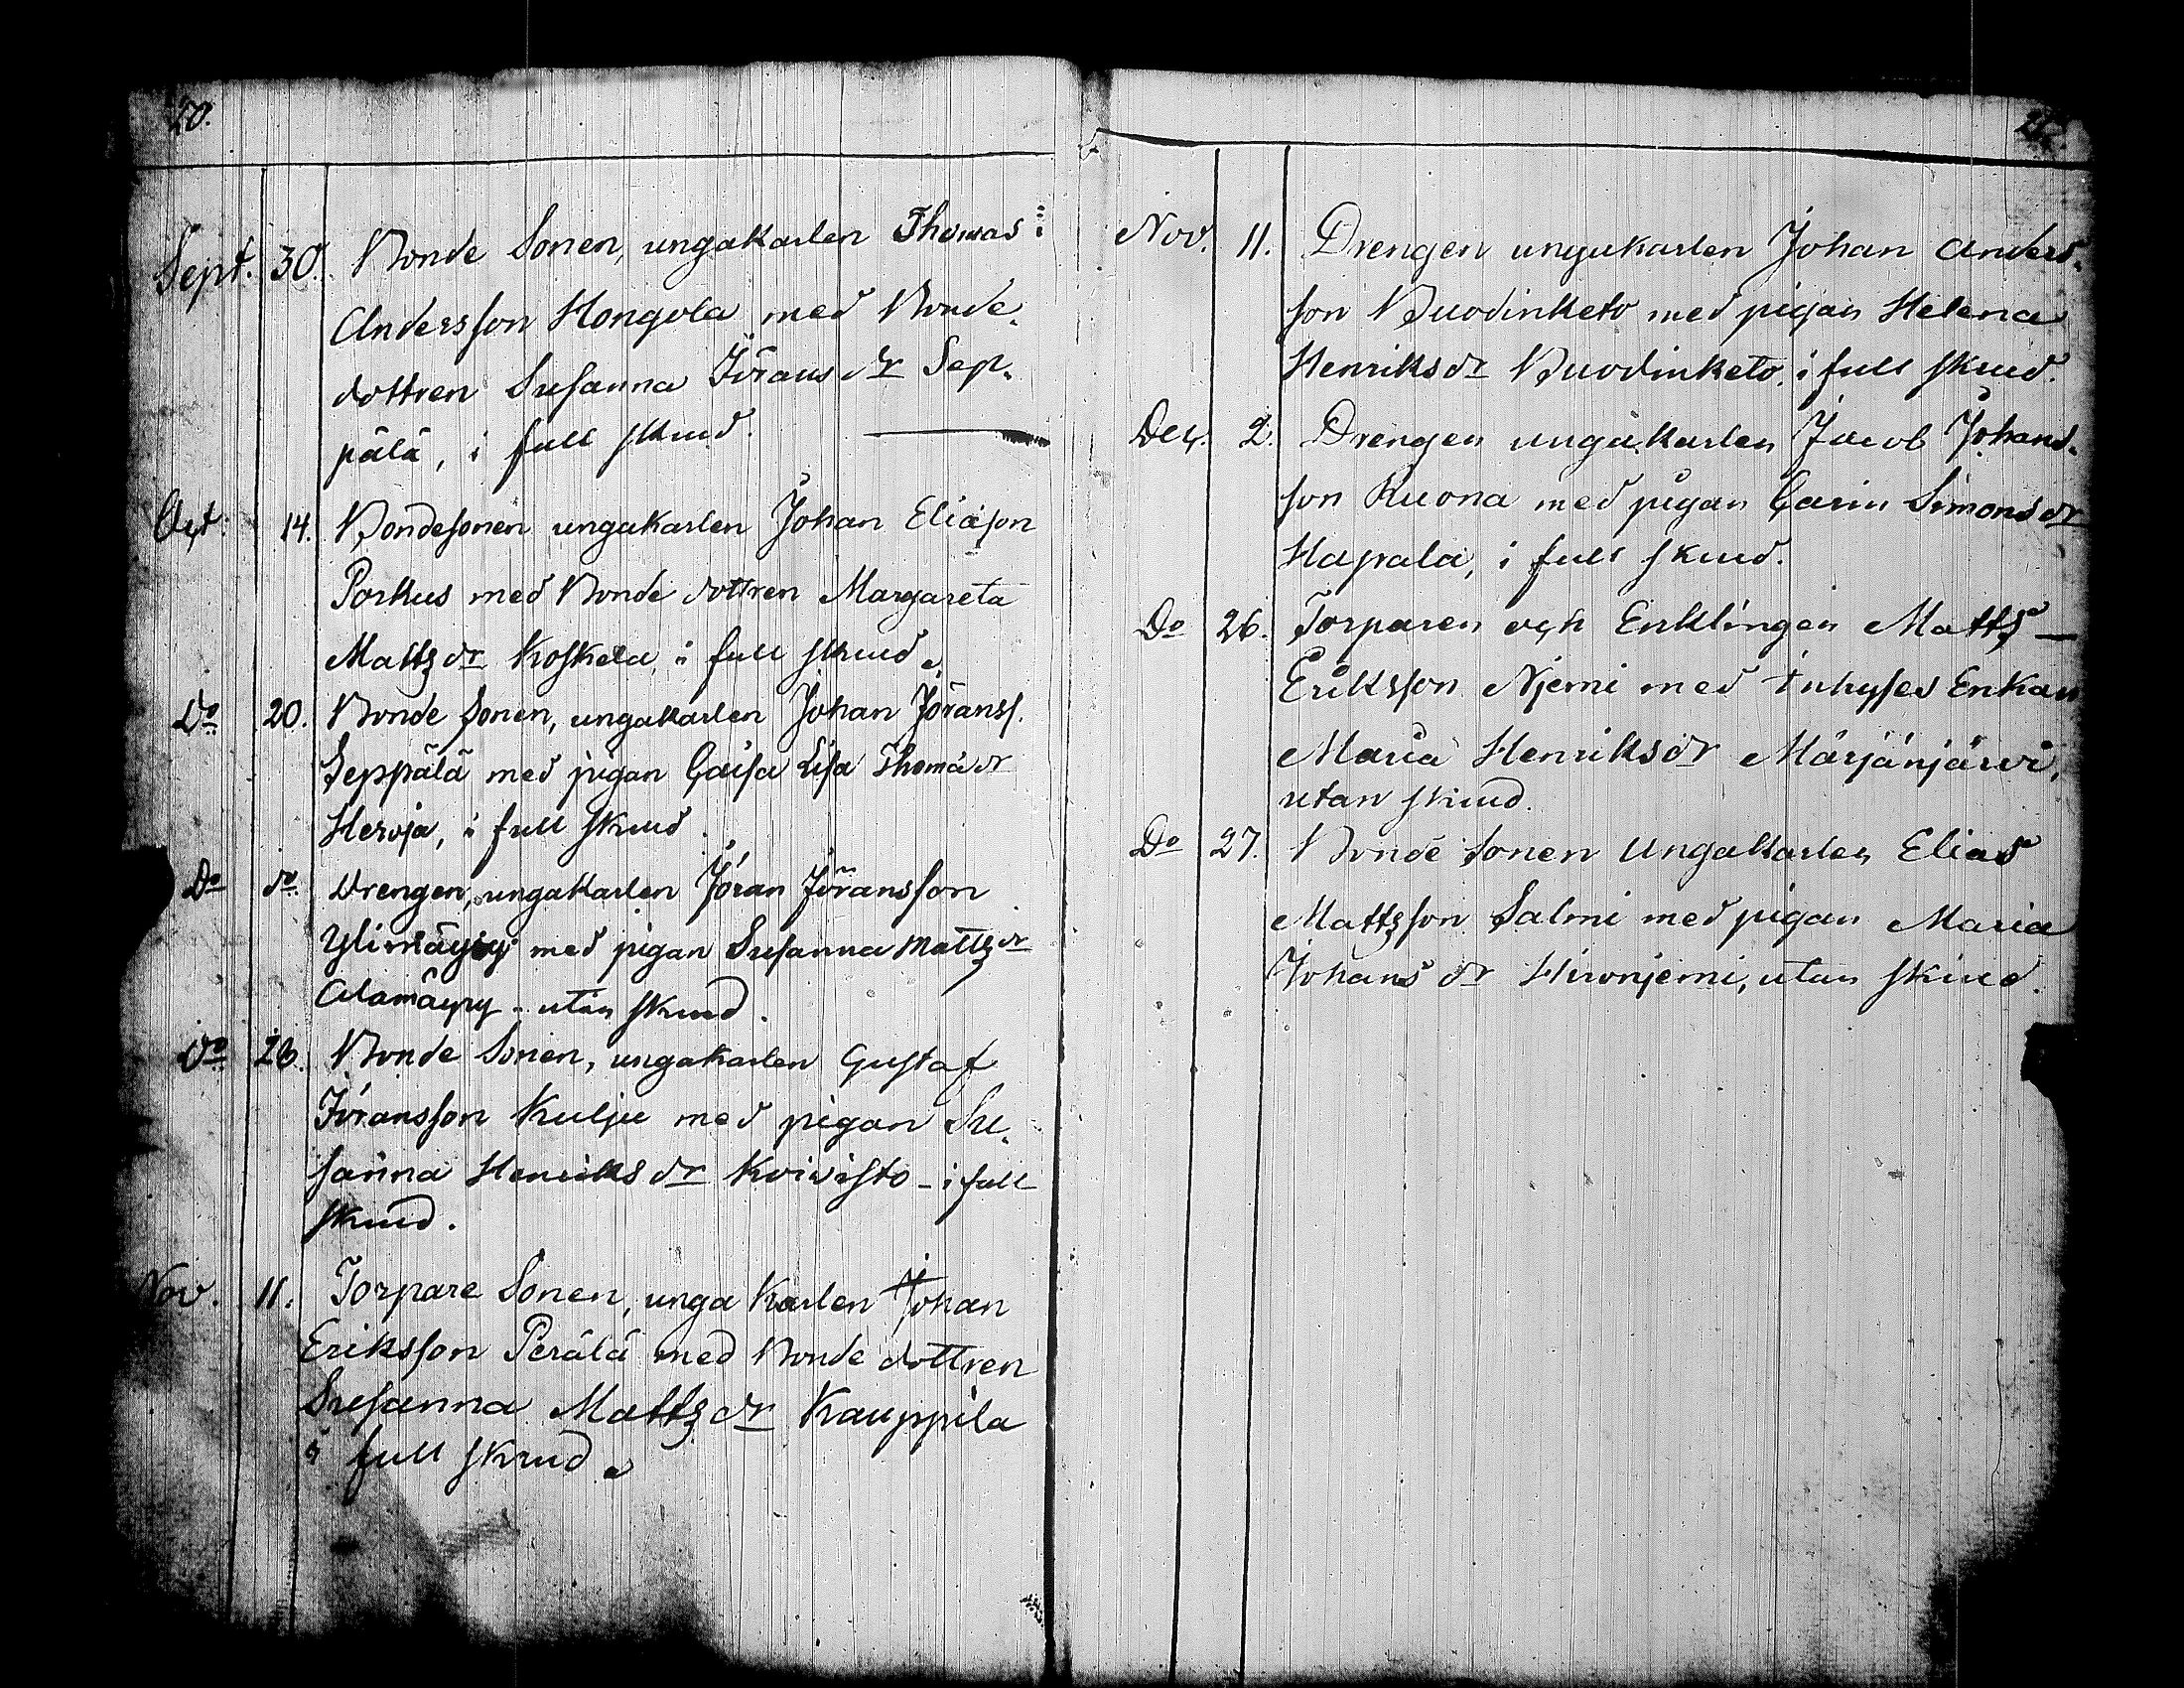 20.
Sept. 30. Bonde Sonen, ungakarlen Thomas
Andersson Hongola med Bonde
dottren Susanna Jörans dr Sep-
pälä, i full skrud.
Oct. 14. Bondesonen ungakarlen Johan Eliason
Porkus med Bonde dottren Margareta
Matts dr Koskela, i full skrud.
Do 20. Bonde Sonen, ungakarlen Johan Jöranss.
Seppälä med pigan Caisa Lisa Thomä dr
Heroja, i full skrud.
Do do Drengen, ungakarlen Jöran Jöransson
med pigan Susanna Matts dr
Alamäyry - utan skrud.
Do 28. Bonde Sonen, ungakarlen Gustaf
Jöransson Kulju med pigan Su-
sanna Henriks dr Koivisto - i full
skrud.
Nov. 11. Torpare Sonen, unga Karlen Johan
Eriksson Perälä med Bonde dottren
Susanna Matts dr Kauppila
i full skrud.
21.
Nov. 11. Drengen ungakarlen Johan Anders-
son Buodinketo med pigan Helena
Henriks dr Buodinketo, i full skrud.
Dec. 2. Drengen ungakarlen Jacob Johans-
son Kuona med pigan Carin Simons dr
Hapala, i full skrud.
Do 26. Torparen och Enklingen Matts —
Eriksson Njemi med Inhyses Enkan
Maria Henriks dr Märjänjärvi,
utan skrud.
Do 27. Bonde Sonen Ungakarlen Elias
Mattsson Salmi med pigan Maria
Johans dr Hironjemi, utan skrud.